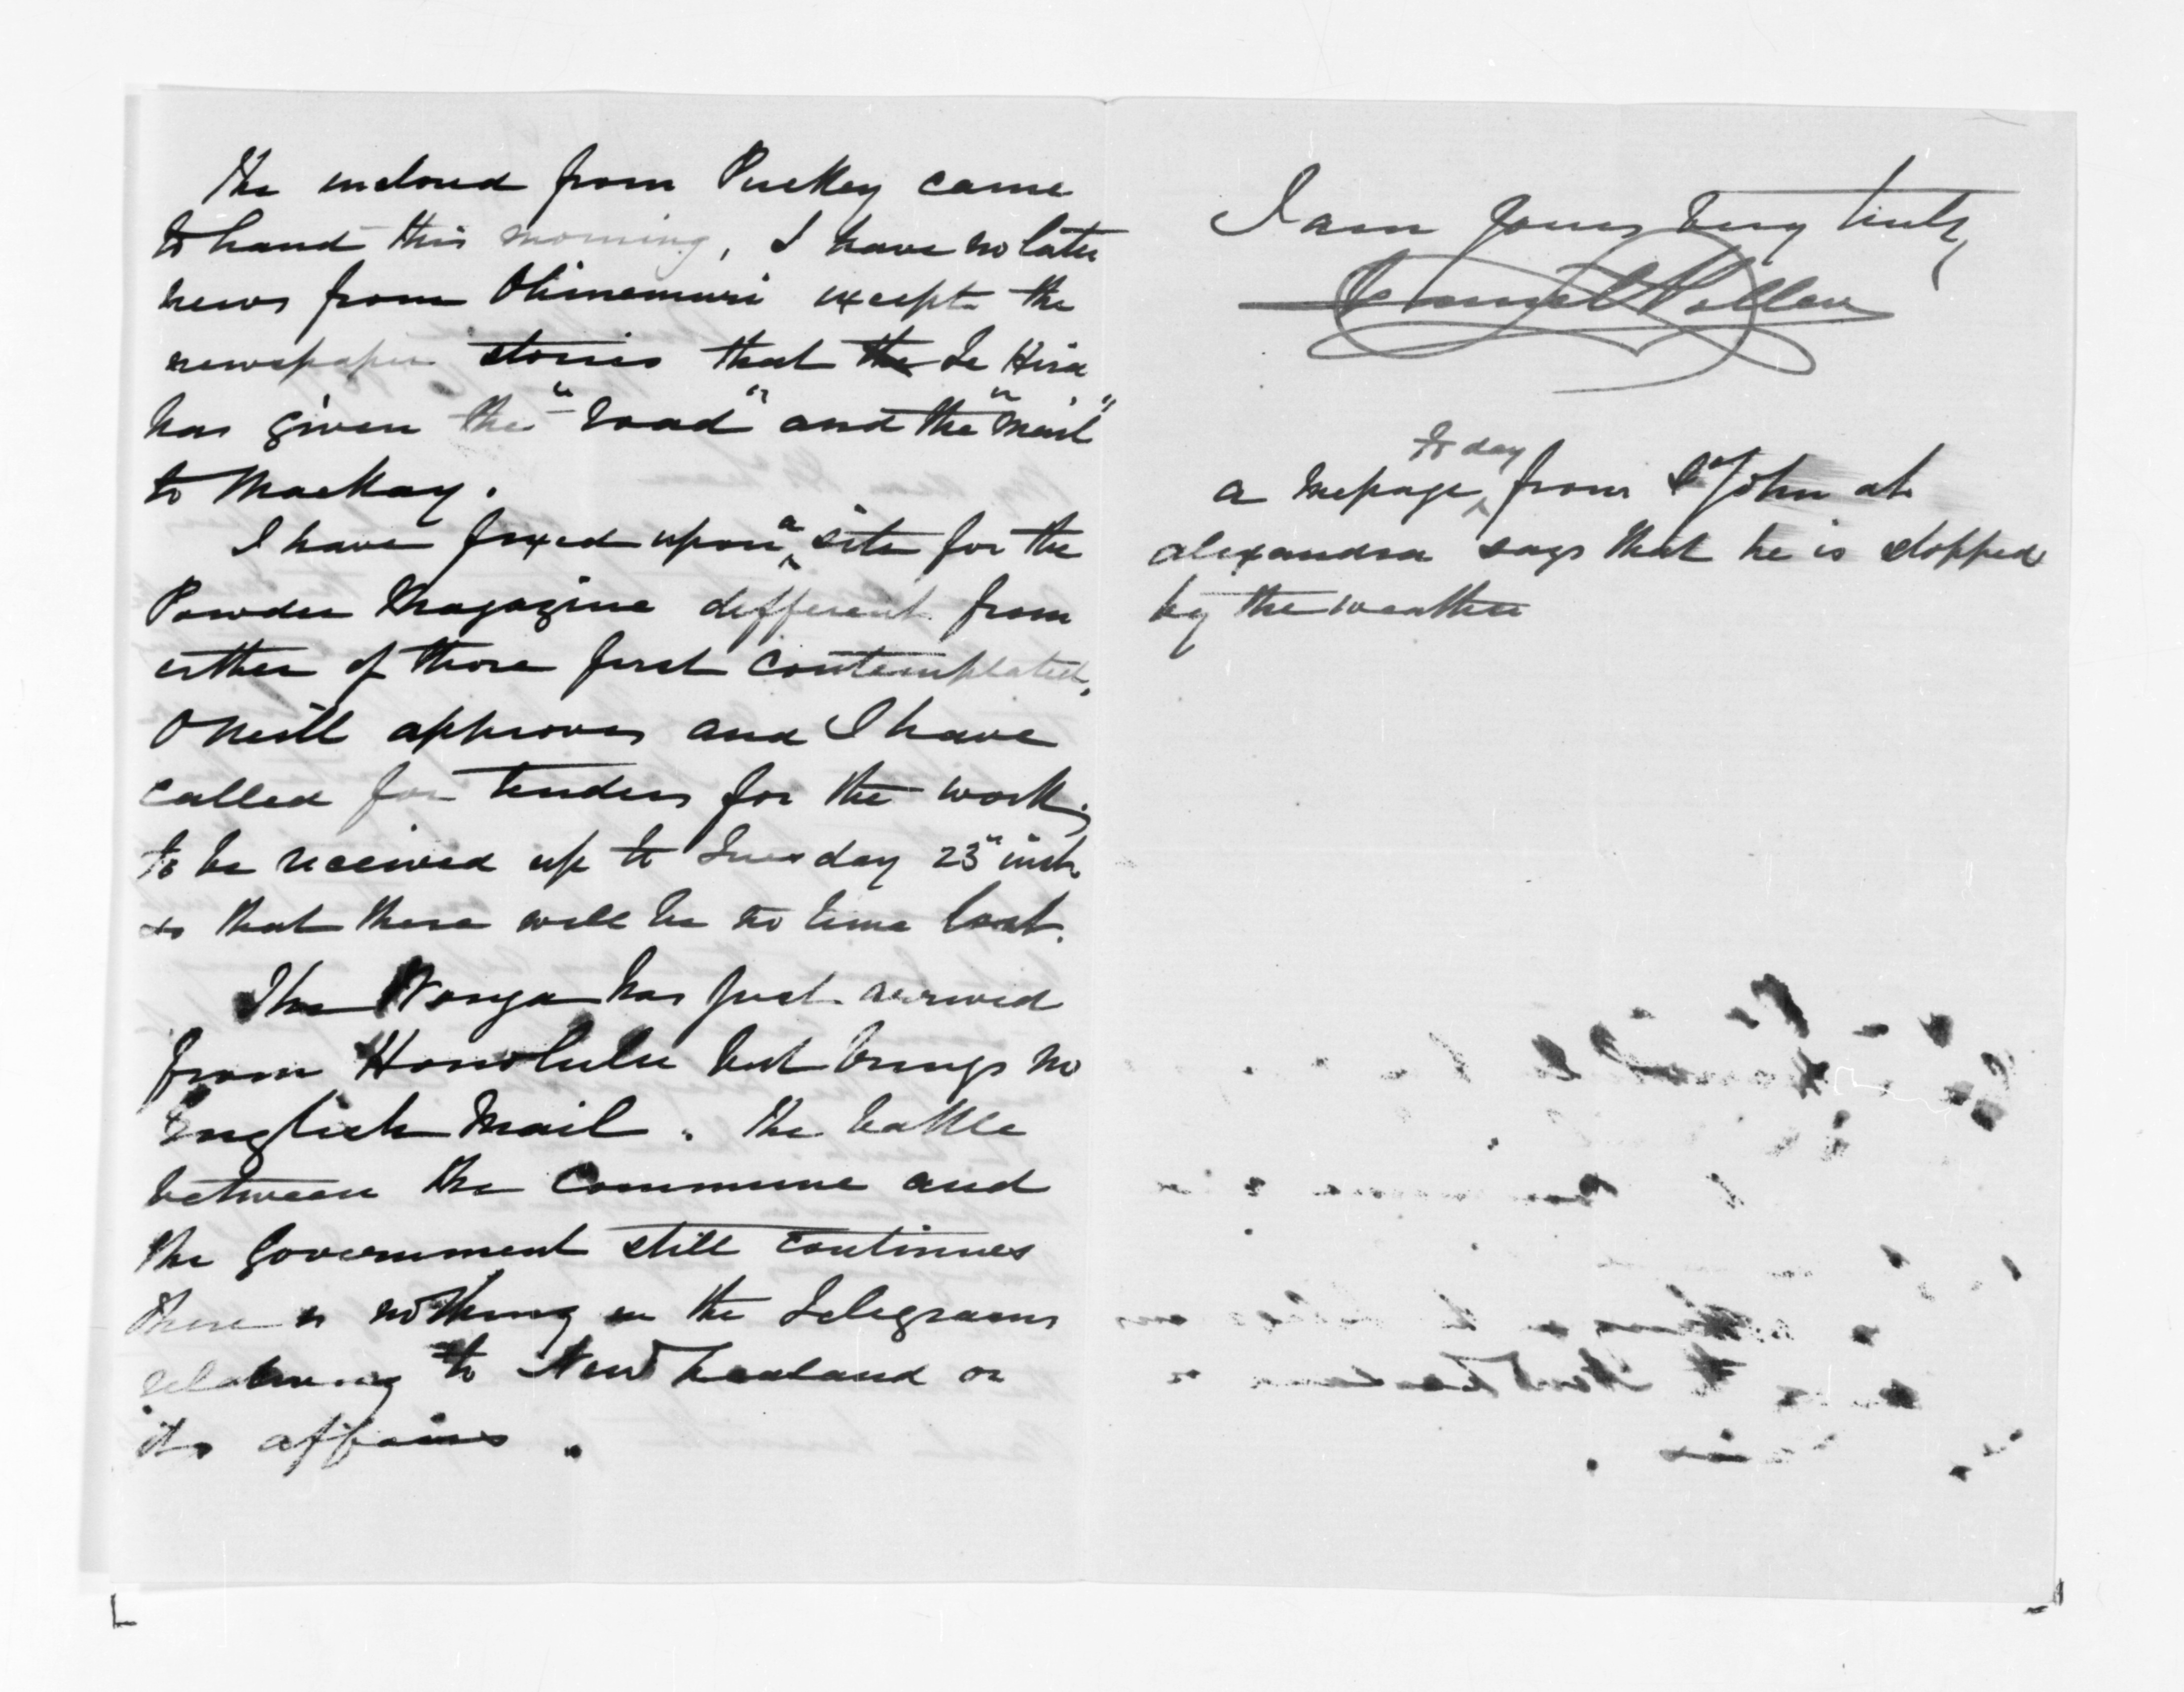 The enclosed from Puckey came
to hand this morning, I have no later
news from Ohinemuri except the
newspaper stories that the Te Hira
has given the "road" and the "mail"
to Mackay.
I have fixed upon a site for the
Powder Magazine different from
either of those first contemplated,
O'Neill approves and I have
called for tenders for the work,
to be received up to Tuesday 23" inst.
so that there will be no time lost.
The Wonga has just arrived
from Honolulu but brings no
English Mail. The battle
between the Commune and
the Government still continues
there is nothing in the Telegrams
relating to New Zealand or
its affairs.
I am yours very truly
Daniel Pollen
to day
a message from St John at
Alexandra says that he is stopped
by the weather